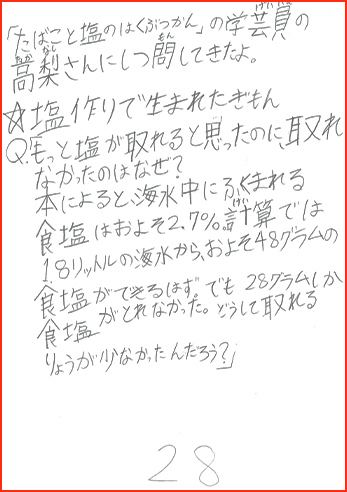 「たばこと塩のはくぶつかん」の学芸員の
高梨さんにしつ問してきたよ。
☆塩作りで生まれたぎもん
Q.「もっと塩が取れると思ったのに、取れ
なかったのはなぜ?
本によると、海水中にふくまれる
食塩はおよそ2.7%。計算では
1.8リットルの海水から、およそ48グラムの
食塩ができるはず。でも 28グラムしか
食塩がとれなかった。どうして取れる
りょうが少なかったんだろう?」
28